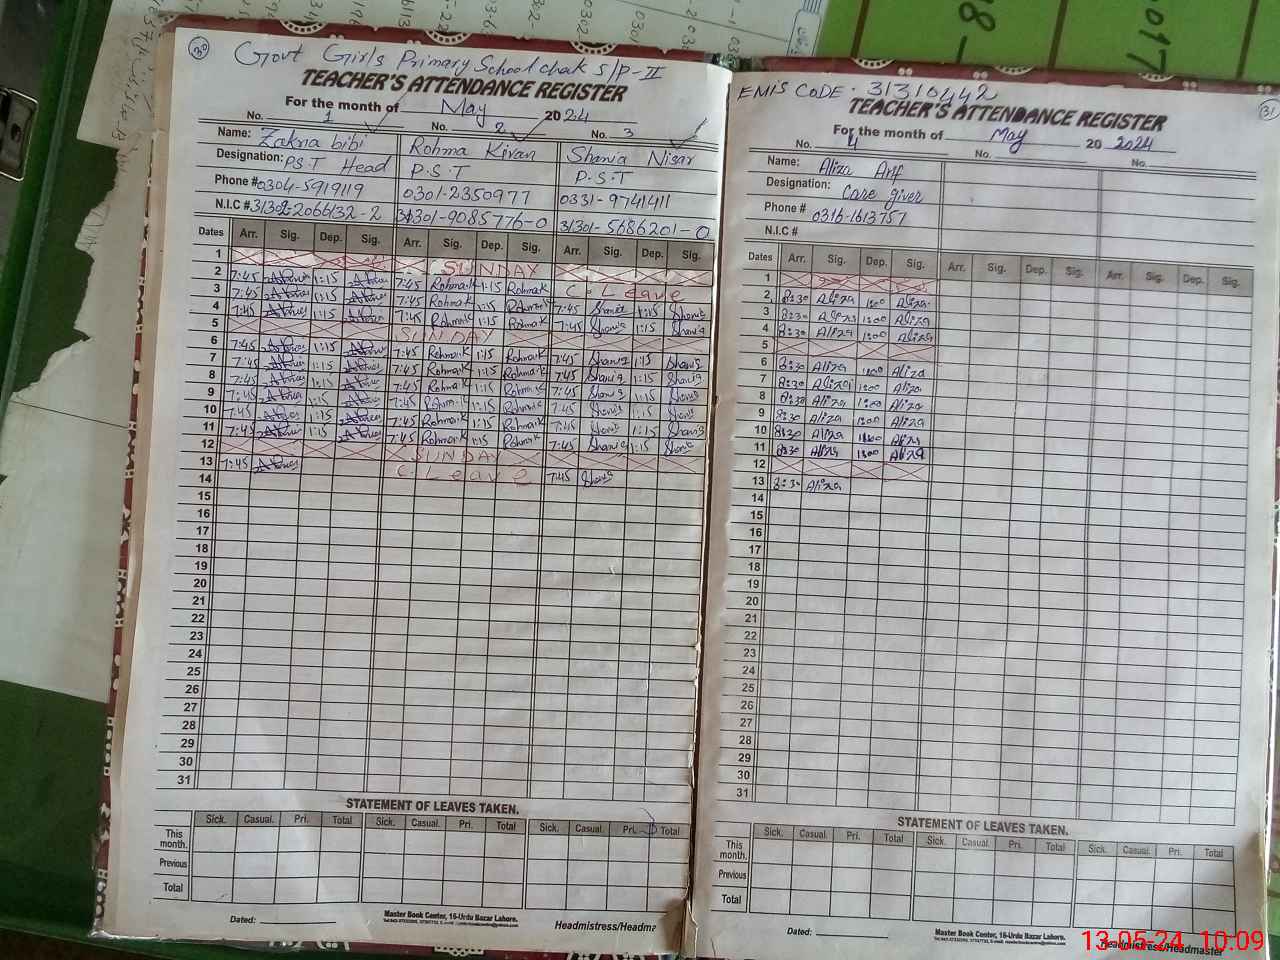 30
Govt Girls Primary School chak 5/P-II
TEACHER'S ATTENDANCE REGISTER
For the month of May 2024
No. 1 No. 2 No. 3
Name: Zakria bibi Rohma Kiran Shania Nisar
Designation: P.S.T Head P.S.T P.S.T
Phone # 0304-5919119 0301-2350977 0331-9741411
N.I.C # 31302-2066132-2 31301-9085776-0 31301-5686201-0
Dates Arr. Sig. Dep. Sig. Arr. Sig. Dep. Sig. Arr. Sig. Dep. Sig.
1 SUNDAY
2 7:45 1:15 7:45 Rohma.K 1:15 Rohma.K C. Leave
3 7:45 1:15 7:45 Rohma.K 1:15 Rohma.K 7:45 Shania 1:15 Shania
4 7:45 1:15 7:45 Rohma.K 1:15 Rohma.K 7:45 Shania 1:15 Shania
5 SUNDAY
6 7:45 1:15 7:45 Rohma.K 1:15 Rohma.K 7:45 Shania 1:15 Shania
7 7:45 1:15 7:45 Rohma.K 1:15 Rohma.K 7:45 Shania 1:15 Shania
8 7:45 1:15 7:45 Rohma.K 1:15 Rohma.K 7:45 Shania 1:15 Shania
9 7:45 1:15 7:45 Rohma.K 1:15 Rohma.K 7:45 Shania 1:15 Shania
10 7:45 1:15 7:45 Rohma.K 1:15 Rohma.K 7:45 Shania 1:15 Shania
11 7:45 1:15 7:45 Rohma.K 1:15 Rohma.K 7:45 Shania 1:15 Shania
12 SUNDAY
13 7:45 C. Leave 7:45 Shania
14
15
16
17
18
19
20
21
22
23
24
25
26
27
28
29
30
31
STATEMENT OF LEAVES TAKEN.
Sick. Casual. Pri. Total Sick. Casual. Pri. Total Sick. Casual. Pri. Total
This month.
Previous
Total
Dated:
Master Book Center, 16-Urdu Bazar Lahore.
Headmistress/Headma
31
EMIS CODE. 31310442
TEACHER'S ATTENDANCE REGISTER
For the month of May 20 2024
No. 4 No. No.
Name: Aliza Arif
Designation: Care giver
Phone # 0316-1613757
N.I.C #
Dates Arr. Sig. Dep. Sig. Arr. Sig. Dep. Sig. Arr. Sig. Dep. Sig.
1
2 8:30 Aliza 1:00 Aliza
3 8:30 Aliza 1:00 Aliza
4 8:30 Aliza 1:00 Aliza
5
6 8:30 Aliza 1:00 Aliza
7 8:30 Aliza 1:00 Aliza
8 8:30 Aliza 1:00 Aliza
9 8:30 Aliza 1:00 Aliza
10 8:30 Aliza 1:00 Aliza
11 8:30 Aliza 1:00 Aliza
12
13 8:30 Aliza
14
15
16
17
18
19
20
21
22
23
24
25
26
27
28
29
30
31
STATEMENT OF LEAVES TAKEN.
Sick. Casual. Pri. Total Sick. Casual. Pri. Total Sick. Casual. Pri. Total
This month.
Previous
Total
Dated:
Master Book Center, 16-Urdu Bazar Lahore.
Headmistress/Headmaster
13-05-24 10:09